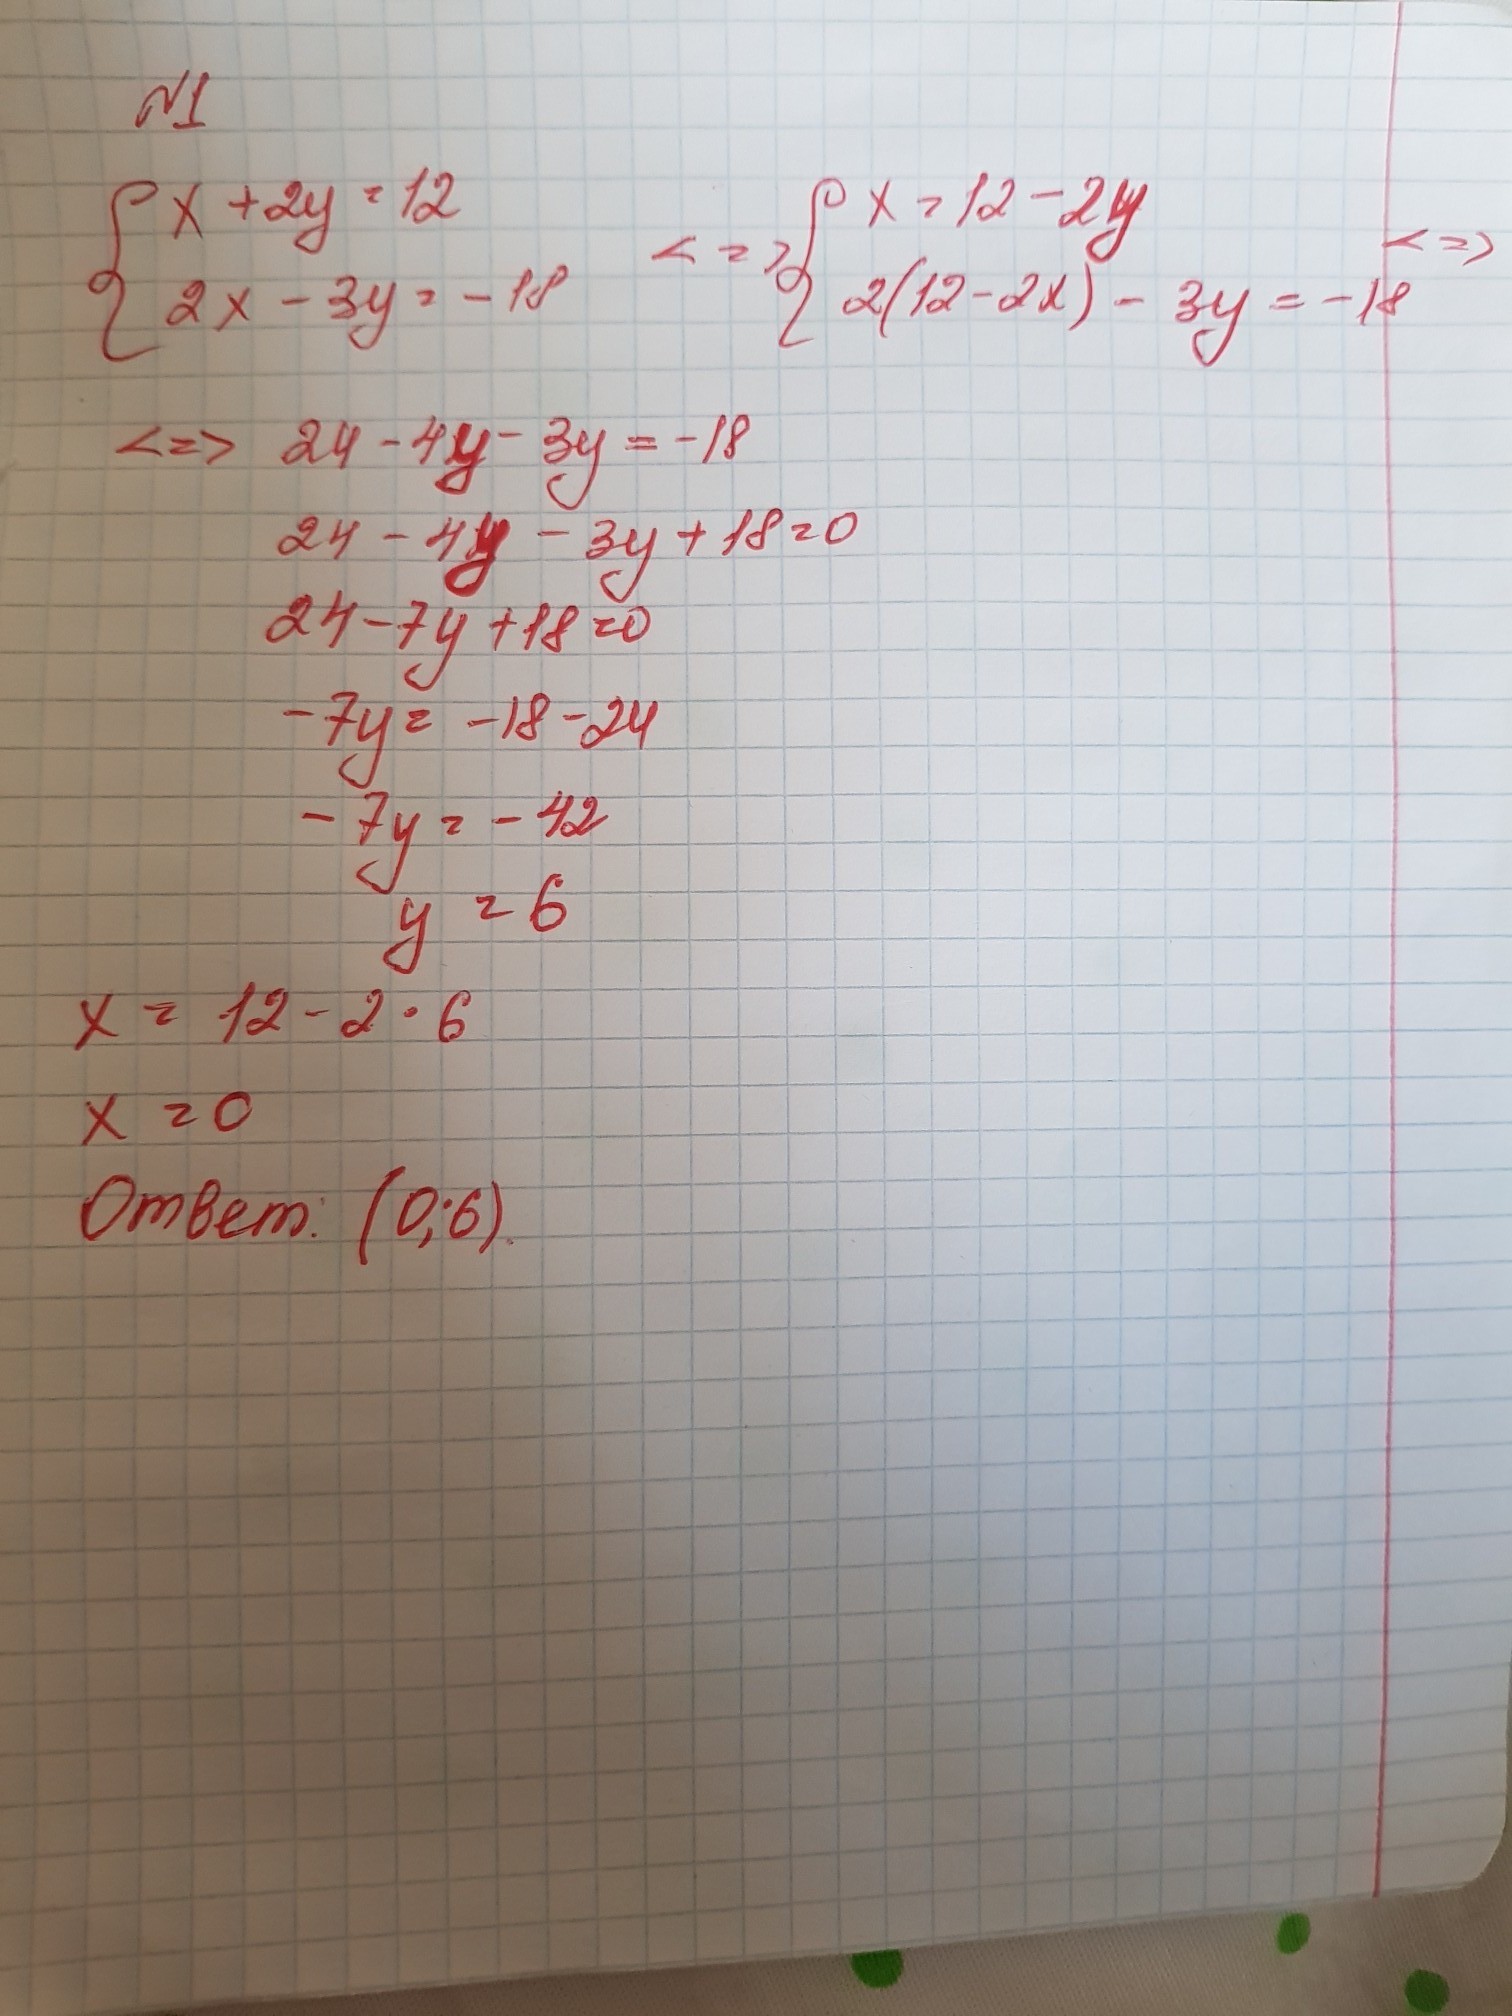 №1
{ x + 2y = 12 <=> { x = 12 - 2y <=>
2x - 3y = -18 2(12 - 2x) - 3y = -18
<=> 24 - 4y - 3y = -18
24 - 4y - 3y + 18 = 0
24 - 7y + 18 = 0
-7y = -18 - 24
-7y = -42
y = 6
x = 12 - 2 · 6
x = 0
Ответ: (0; 6).